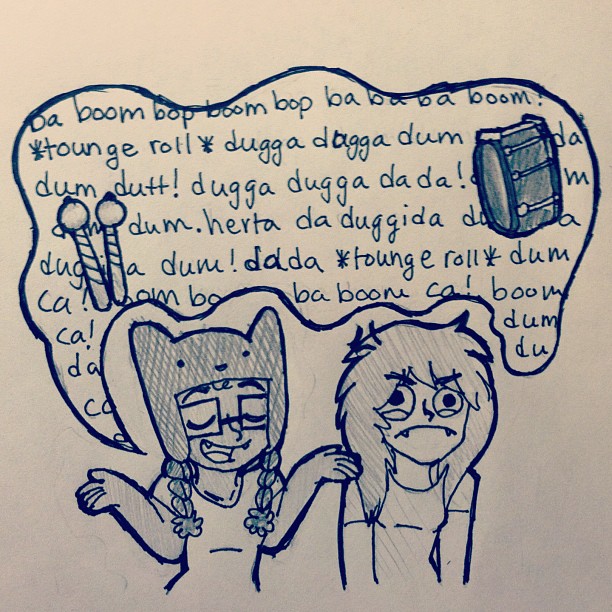 ba boom bop boom bop ba ba ba boom!
*tounge roll* dugga dagga dum da
dum dutt! dugga dugga da da! m
dum.herta da duggida du a
dug a dum! dada *tounge roll* dum
ca! om bo ba boom ca! boom
ca! dum
da du
ca
da